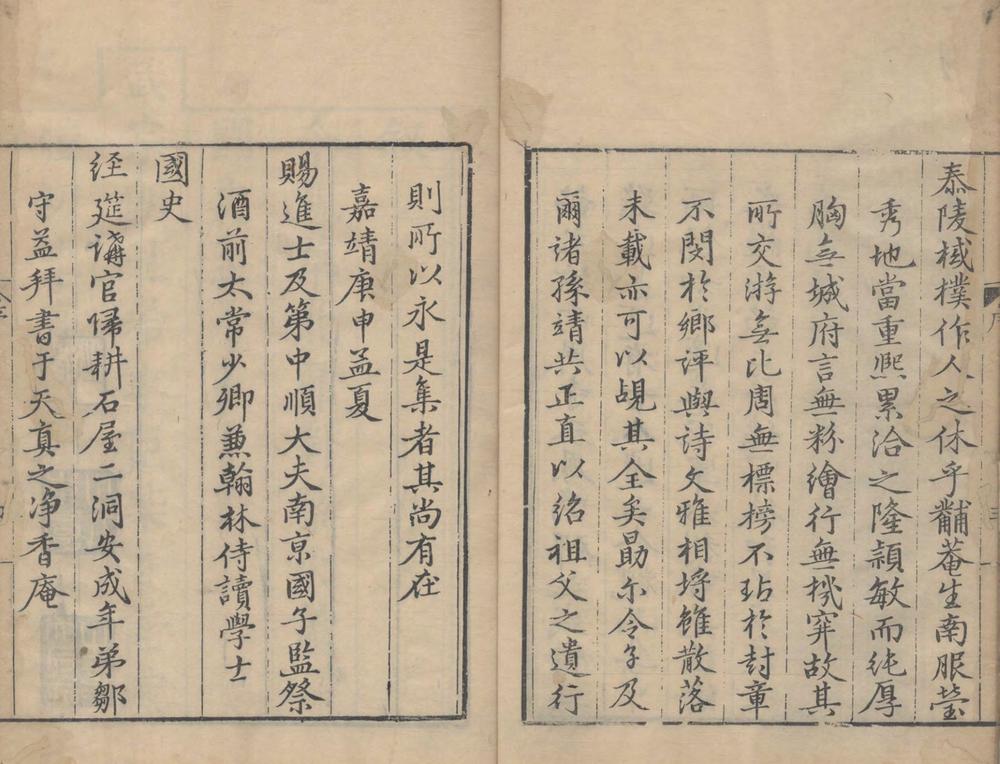 泰陵棫樸作人之休乎黼菴生南服瑩
秀地當重熙累洽之隆穎敏而純厚
胸無城府言無粉繪行無機穽故其
所交游無比周無標榜不玷於封章
不閔於鄉評與詩文雅相埒雖散落
未載亦可以覘其全矣勗尓令子及
爾諸孫靖共正直以紹祖父之遺行
則所以永是集者其尚有在
嘉靖庚申孟夏
賜進士及第中順大夫南京國子監祭
酒前太常少卿兼翰林侍讀學士
國史
經筵講官歸耕石屋二洞安成年弟鄒
守益拜書于天真之净香庵